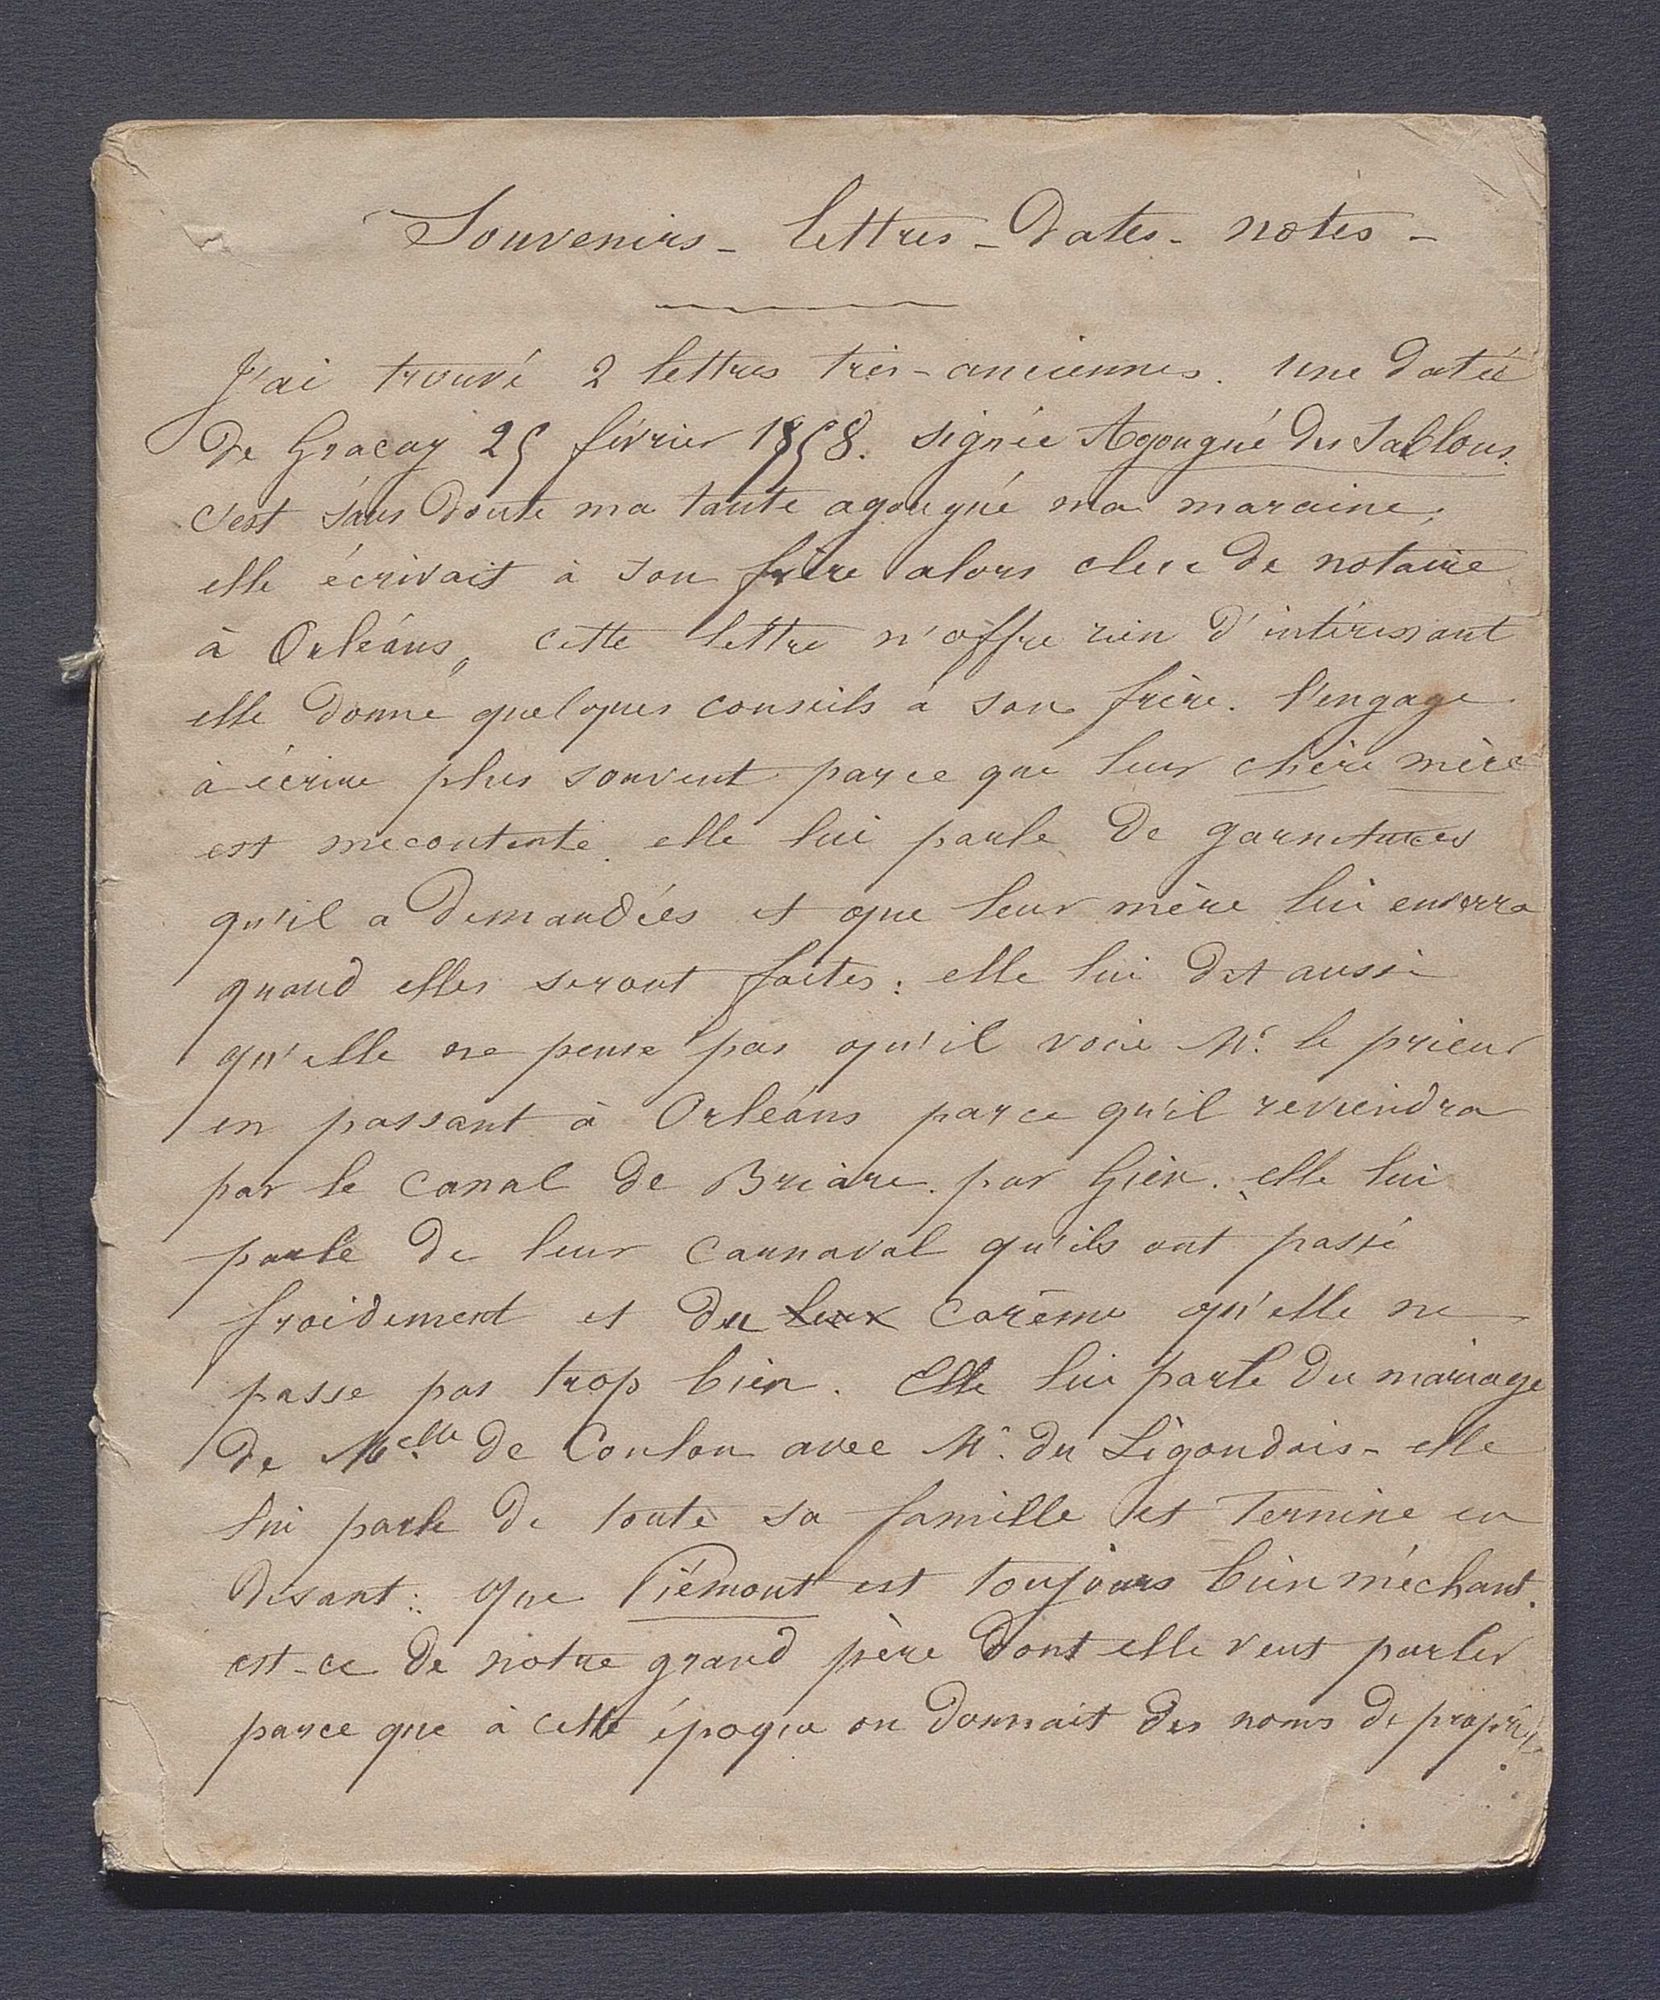 Souvenirs - lettres - Dates - notes -
J'ai trouvé 2 lettres très-anciennes. une datée
de Graçay 25 février 1858. signée Agougué des Sablons.
c'est sans doute ma tante agougué ma maraine,
elle écrivait à son frère alors clerc de notaire
à Orléans, cette lettre n'offre rien d'intéressant
elle donne quelques conseils à son frère. l'engage
à écrire plus souvent parce que leur chère mère
est mecontente. elle lui parle de garnitures
qu'il a demandées et que leur mère lui enverra
quand elles seront faites: elle lui dit aussi
qu'elle ne pense pas qu'il voie Mr. le prieur
en passant à Orléans parce qu'il reviendra
par le canal de Briare. par Gien. elle lui
parle de leur carnaval qu'ils ont passé
froidement et du leur carême qu'elle ne
passe pas trop bien. Elle lui parle du mariage
de Melle de Coulon avec Mr. du Ligondais - elle
lui parle de toute sa famille et termine en
disant: que Piémont est toujours bien méchant.
est-ce de notre grand père dont elle veut parler
parce que à cette époque on donnait des noms de propriét